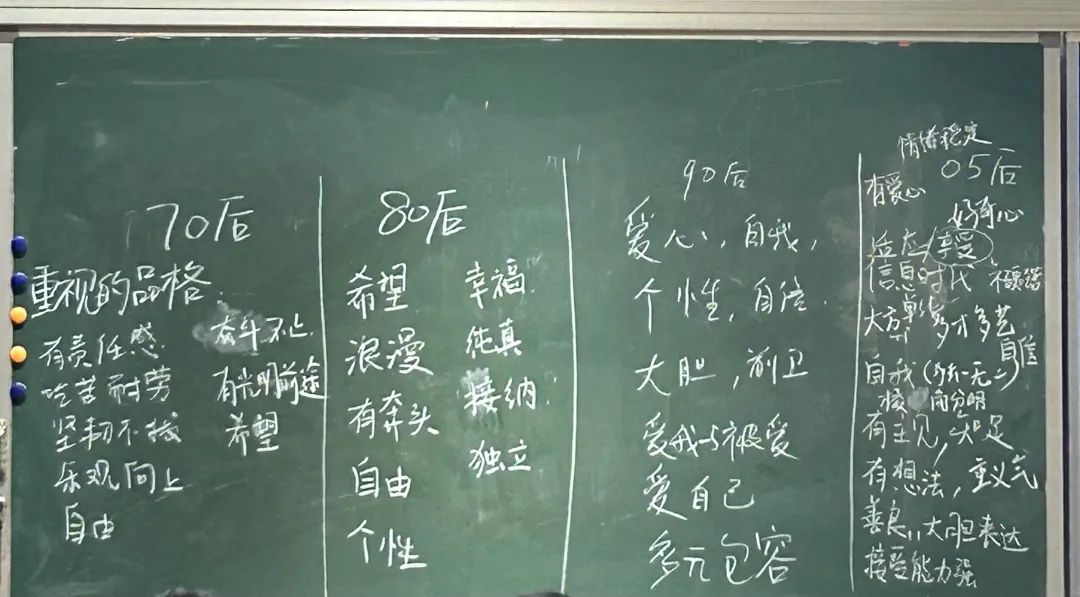 70后
重视的品格
有责任感
吃苦耐劳
坚韧不拔
乐观向上
自由
奋斗不止
有光明前途
希望
80后
希望
浪漫
有奔头
自由
个性
幸福
纯真
接纳
独立
90后
爱心、自我,
个性,自信
大胆,前卫
爱我与被爱
爱自己
多元包容
情绪稳定
05后
有爱心
好奇心
适应/享受
信息时代
大方
多才多艺
自信
自我(独一无二)
有主见,
有想法,重义气
善良,大胆表达
接受能力强